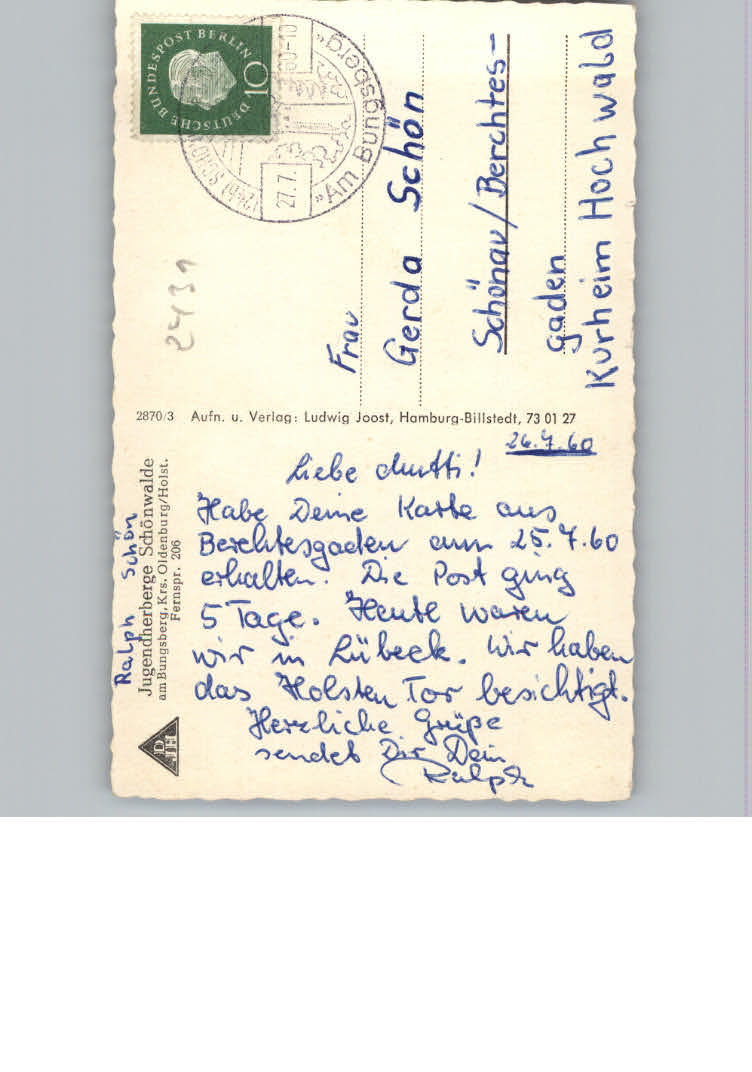 26.7.60
Liebe Mutti!
Habe Deine Karte aus
Berchtesgaden am 25.7.60
erhalten. Die Post ging
5 Tage. Heute waren
wir in Lübeck. Wir haben
das Holsten Tor besichtigt.
Herzliche Grüße
sendet Dir Dein
Ralph
Ralph Schön
Jugendherberge Schönwalde
am Bungsberg, Krs. Oldenburg/Holst.
Fernspr. 206
DJH
2870/3 Aufn. u. Verlag: Ludwig Joost, Hamburg-Billstedt, 73 01 27
Frau
Gerda Schön
Schönau/Berchtes-
gaden
Kurheim Hochwald
2431
DEUTSCHE BUNDESPOST BERLIN
10
"Am Bungsberg"
27.7.
60-10